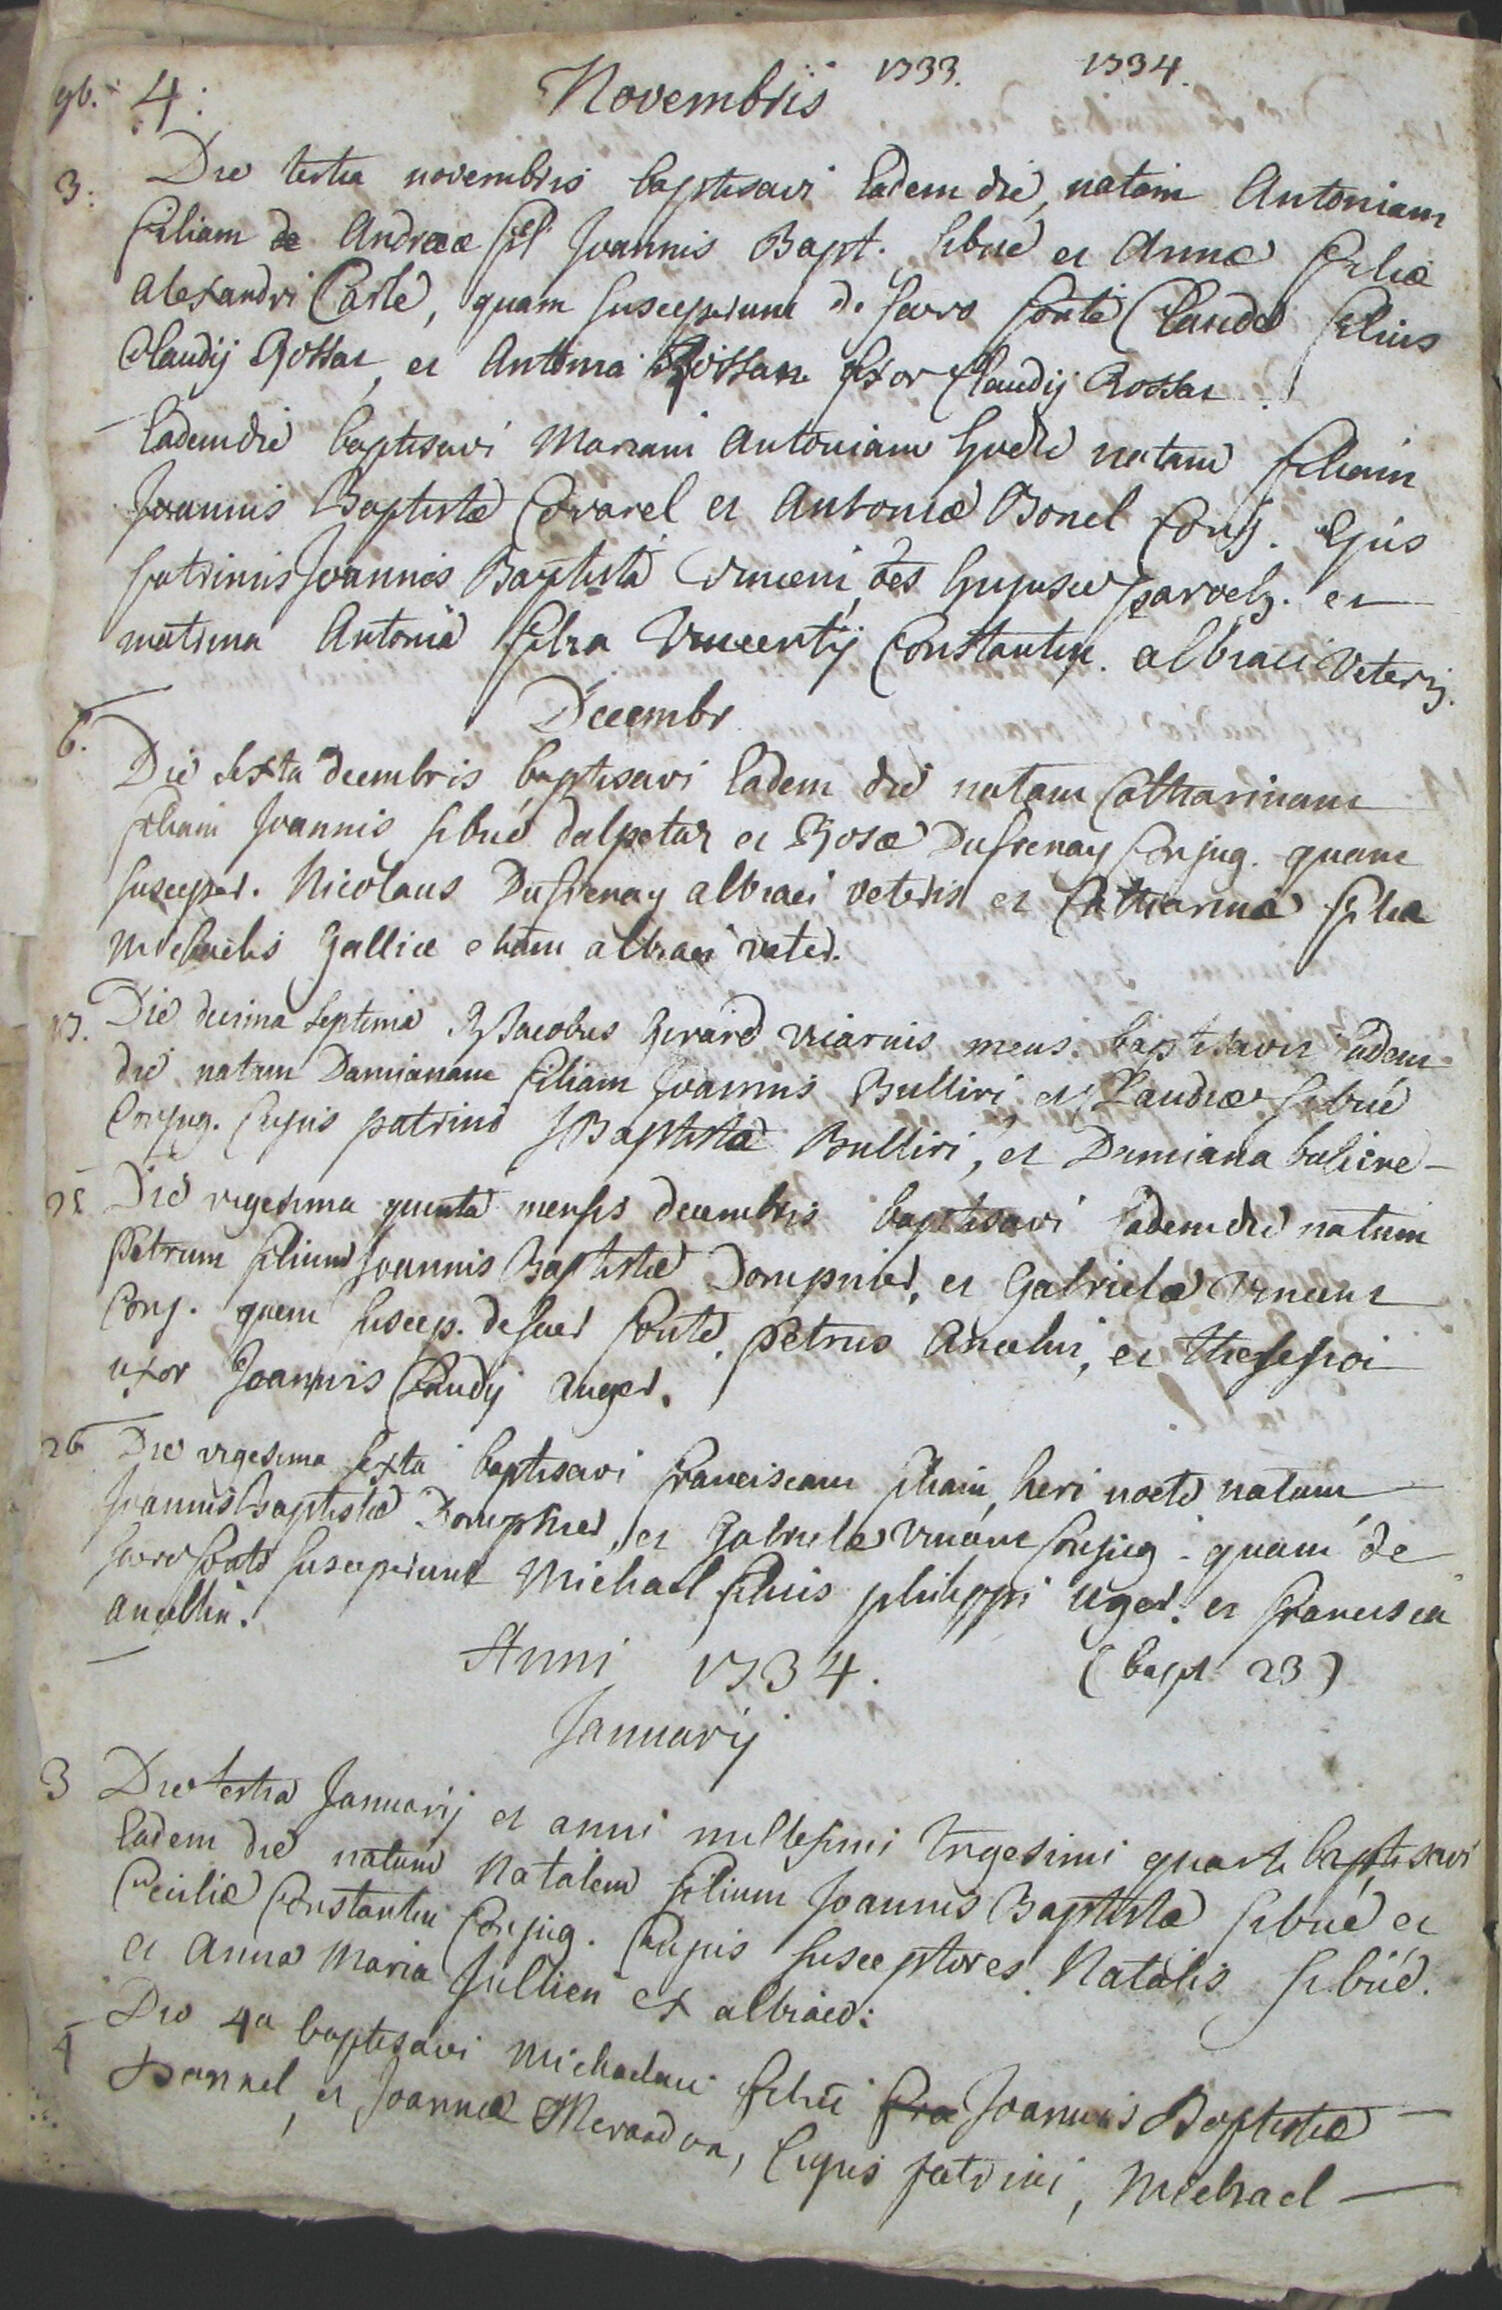 9b. 4: Novembris 1733. 1734.
3. Die tertia novembris baptisavi Eadem die natam Antoniam
filiam de Andreæ fil Joannis Bapt. Sibué et Annæ filiæ
Alexandri Carle, quam susceperunt de sacro fonte Claude filius
Claudij Rossat, et Antonia uxor Claudij Rossat.
Eadem die baptisavi Mariam Antoniam hodie natam filiam
Joannis Baptistæ Covarel et Antoniæ Bonel Conj. Ejus
patrinus Joannes Baptista Vincent, hujusce paroch. et
matrina Antonia filia Vincentij Constantin. albiaci Veteris.
Decembr
6. Die sexta decembris baptisavi Eadem die natam Catharinam
filiam Joannis Sibué dalpetaz et Rosæ Dufrenay Conjug. quam
susceper. Nicolaus Dufrenay albiaci veteris et Catharina filia
Michaelis Gallice etiam albiaci veter.
17. Die decima septima R Jacobus Gerard vicarius meus baptisavit Eadem
die natam Damianam filiam Joannis Bulliri et Claudiæ Sibué
Conjug. Cujus patrinus J Baptista Bulliri, et Damiana balicre
25 Die vigesima quinta mensis decembris baptisavi Eadem die natum
Petrum filium Joannis Baptistæ Dompnier, et Gabrielæ Vincent
Conj. quem suscep. de sacr fonte Petrus Ancelin, et
uxor Joannis Claudij auger.
26 Die vigesima sexta baptisavi franciscam filiam, heri nocte natam
Joannis Baptistæ Dompnier, et Gabrielæ Vincent Conjug. quam de
sacro fonte susceperunt Michael filius philippi uger. et francisca
ancellin.
Anni 1734. (bapt 23)
Januarij
3 Die tertia Januarij et anni millesimi trigesimi quarti baptisavi
Eadem die natum Natalem filium Joannis Baptistæ Sibué et
Ceciliæ Constantin Conjug. Cujus susceptores Natalis Sibué.
et Anna Maria Jullien ex albiaco:
4 Die 4a baptisavi Michaelem filiū fra Joannis Baptistæ
et Joannæ Merandon, Cujus patrini, Michael